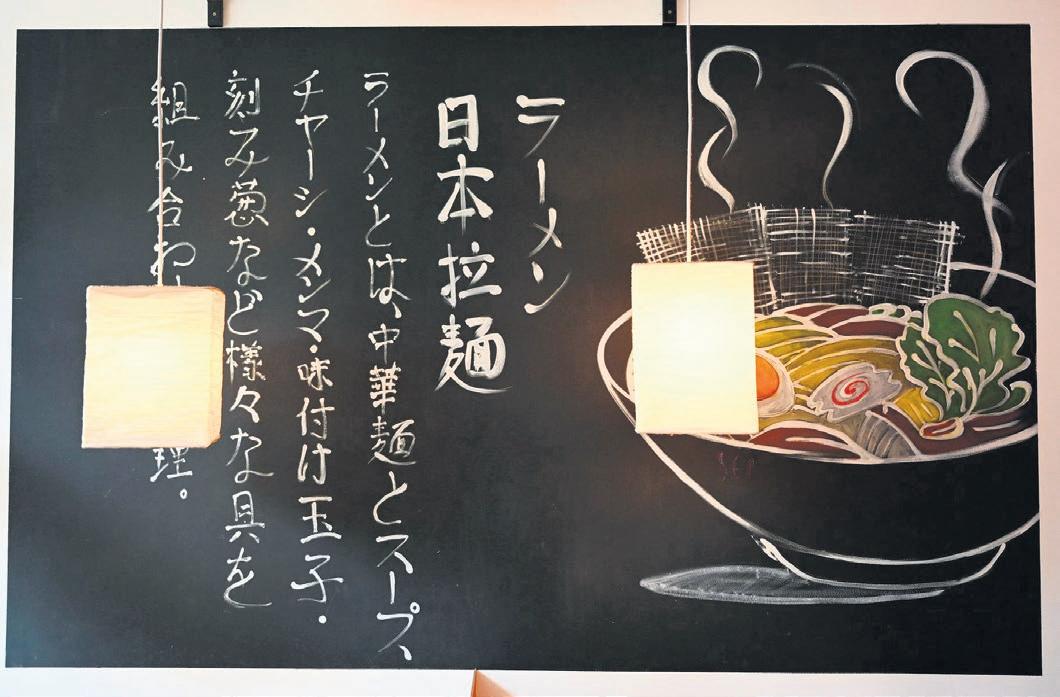 ラーメン
日本拉麺
ラーメンとは、中華麺とスープ、
チャーシ・メンマ・味付け玉子・
刻み葱など様々な具を
組み合わ 理。